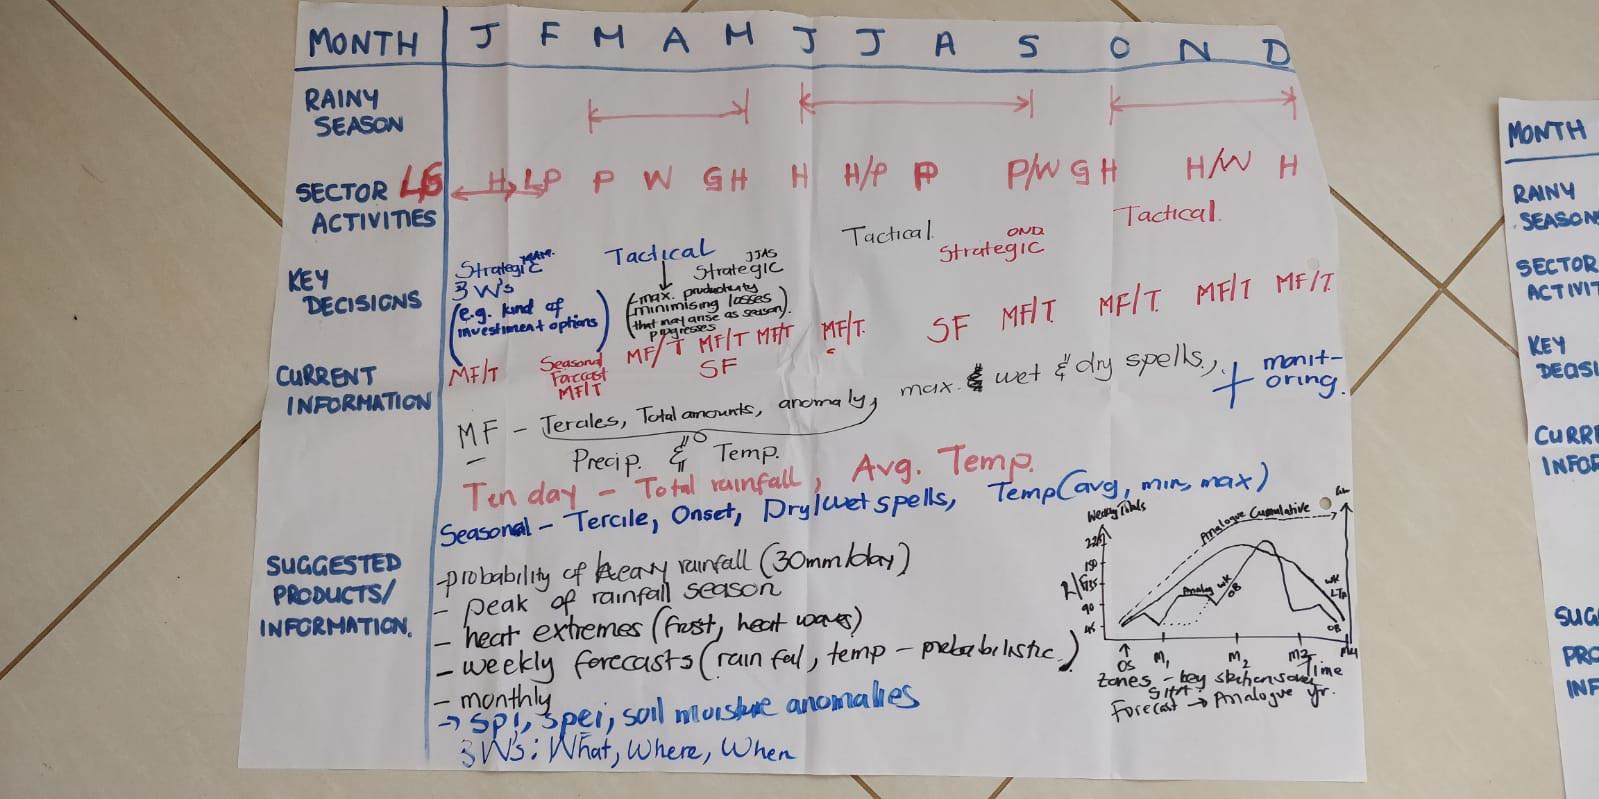 MONTH J F M A M J J A S O N D
RAINY
SEASON
SECTOR
ACTIVITIES
H LP P W G H H H/P P P/W G H H/W H
KEY
DECISIONS
Strategic MAM.
3 W's
(e.g. kind of
investment options)
Tactical
JJAS
Strategic
(-max. productivity
-minimising losses
that may arise as season
progresses).
Tactical.
OND
Strategic
Tactical.
CURRENT
INFORMATION
MF/T
Seasonal
Forcast
MF/T
MF/T MF/T MF/T MF/T.
SF
SF MF/T MF/T. MF/T MF/T.
MF - Terciles, Total amounts, anomaly, max. & wet & dry spells, + monit-
oring.
Precip. & Temp.
Ten day - Total rainfall, Avg. Temp.
Seasonal - Tercile, Onset, Dry/wet spells, Temp(avg, min, max)
SUGGESTED
PRODUCTS/
INFORMATION.
-probability of heavy rainfall (30mm/day)
- peak of rainfall season
- heat extremes (frost, heat waves)
- weekly forecasts (rain fal, temp - probabilistic.)
- monthly
→ Spi, Spei, soil moisture anomalies
3 W's: What, Where, When
Weekly Totals
Analogue Cumulative
90
45
Analog WK
OB
WK
LTA
OB
OS M1 M2 M3 M4
Time
Zones - key
Forecast → Analogue yr.
MONTH
RAINY
SEASON
SECTOR
ACTIVIT
KEY
DECISI
CURRE
INFOR
SUG
PRO
INF